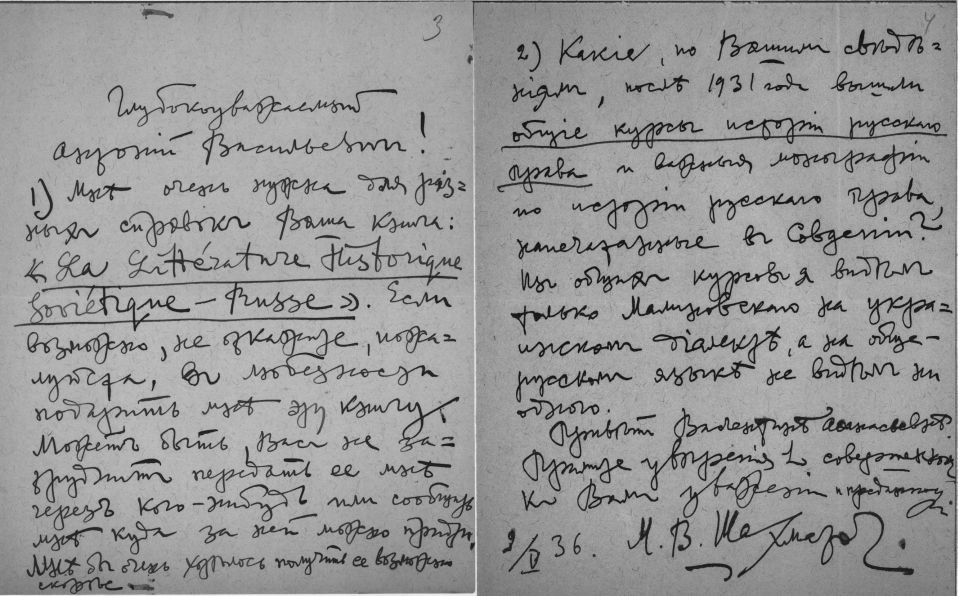 3
Глубокоуважаемый
Антонiй Васильевичъ!
1) Мнѣ очень нужна для раз=
ныхъ справокъ Ваша книга:
« La Littérature Historique
Soviétique — Russe ». Если
возможно, не откажите, пожа=
луйста, въ любезности
подарить мнѣ эту книгу.
Можетъ быть, Васъ не за=
труднитъ передать ее мнѣ
черезъ кого-нибудь или сообщить
мнѣ куда за ней можно прийти.
Мнѣ бы очень хотѣлось получить ее возможно
скорѣе.
4
2) Какiе, по Вашимъ свѣдѣ=
нiямъ, послѣ 1931 года вышли
общiе курсы исторiи русскаго
права и важныя монографiи
по исторiи русскаго права,
напечатанные въ Совдепiи?
Изъ общихъ курсовъ я видѣлъ
только Малиновскаго на укра=
инскомъ дiалектѣ, а на обще-
русскомъ языкѣ не видѣлъ ни
одного.
Привѣтъ Валентинѣ Афанасьевнѣ.
Примите увѣренiя въ совершенномъ
къ Вамъ уваженiи и преданности.
2/V 36. М. В. Шахматовъ.